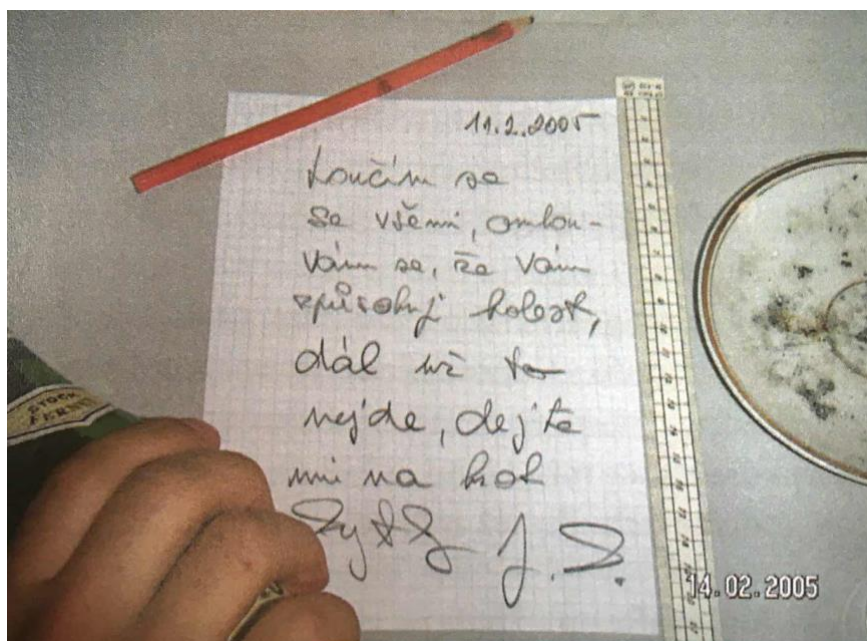 11.2.2005
Loučím se
se všemi, omlou-
vám se, že vám
způsobuji bolest,
dál už to
nejde, dejte
mi na hrob
J. S.
STOCK
FERNET
14.02.2005